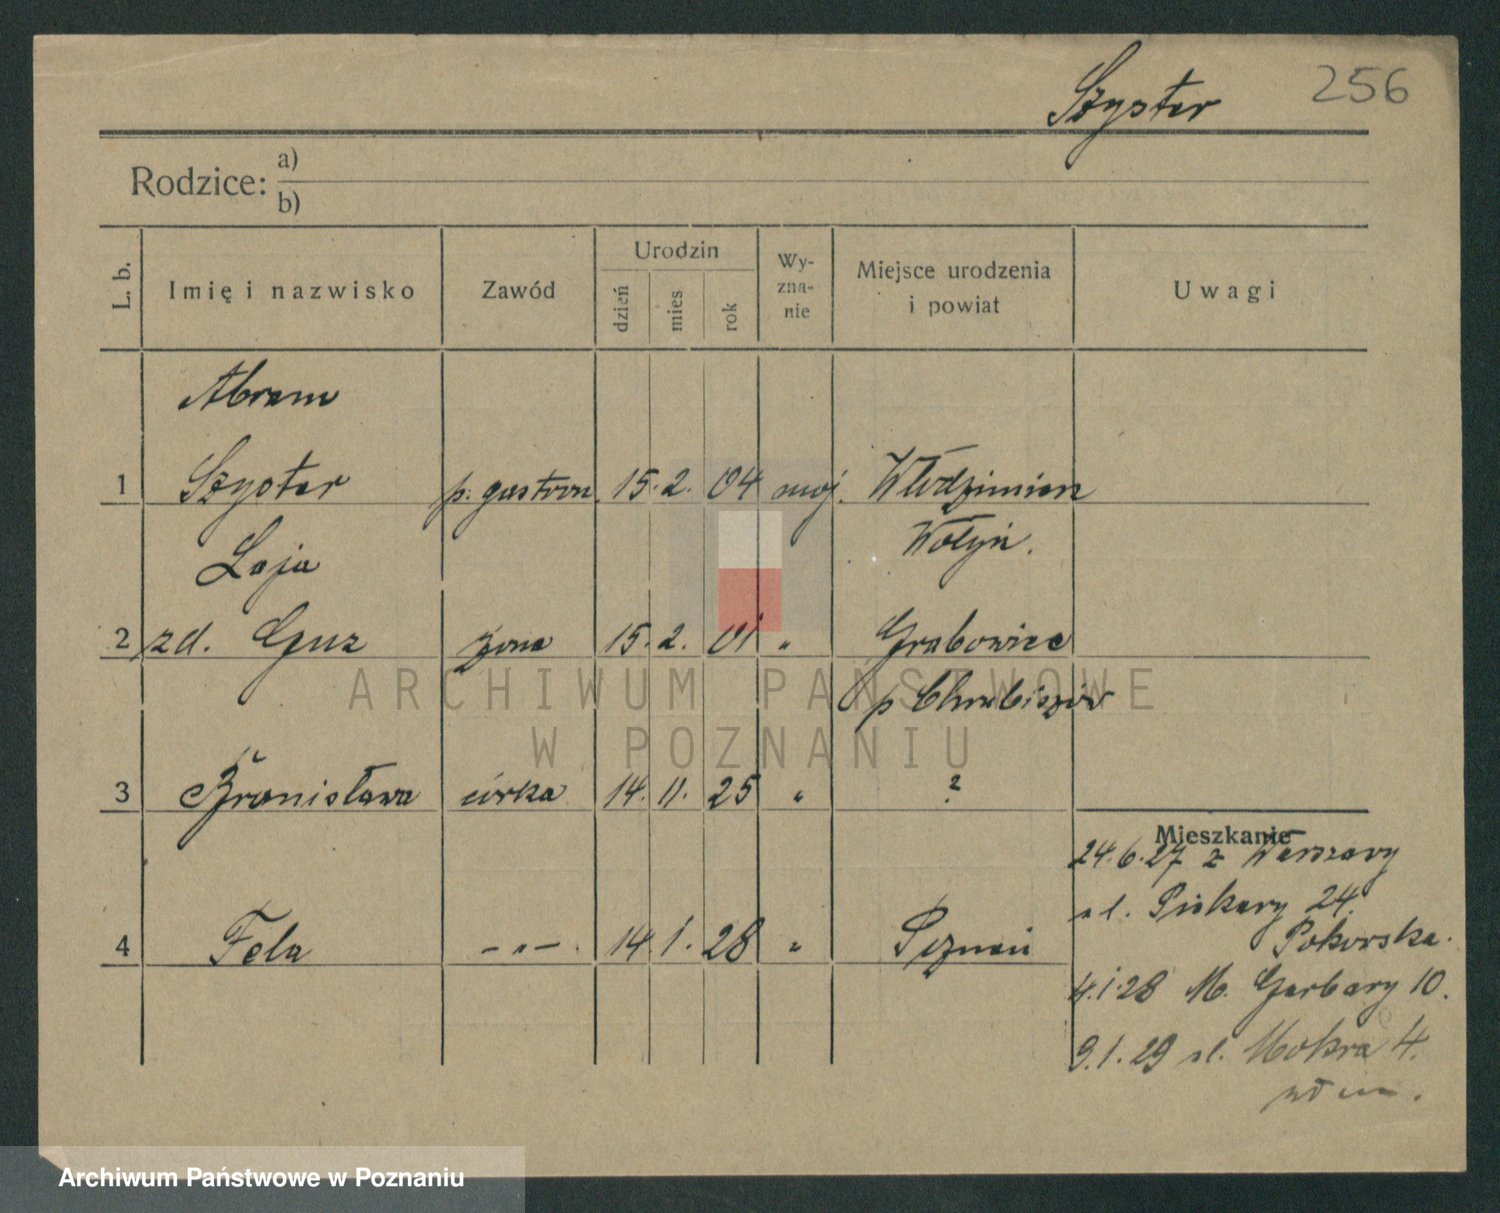 Szyster 256
Rodzice: a)
b)
L. b. Imię i nazwisko Zawód Urodzin dzień mies rok Wy-zna-nie Miejsce urodzenia i powiat Uwagi
Abram
1 Szyster p. gastron. 15. 2. 04 moj. Włodzimierz
Wołyń.
Laja
2 zd. Guz żona 15. 2. 01 " Grabowiec
p Chrubieszów
3 Bronisława córka 14. 11. 25 " ?
Mieszkanie
24.6.27 z Warszawy
ul. Piekary 24.
Pokorska.
4 Fela — " — . 14 1. 28 " Poznań
4.1.28 M. Garbary 10.
9.1.29 ul. Mokra 4.
ARCHIWUM PAŃSTWOWE
W POZNANIU
Archiwum Państwowe w Poznaniu